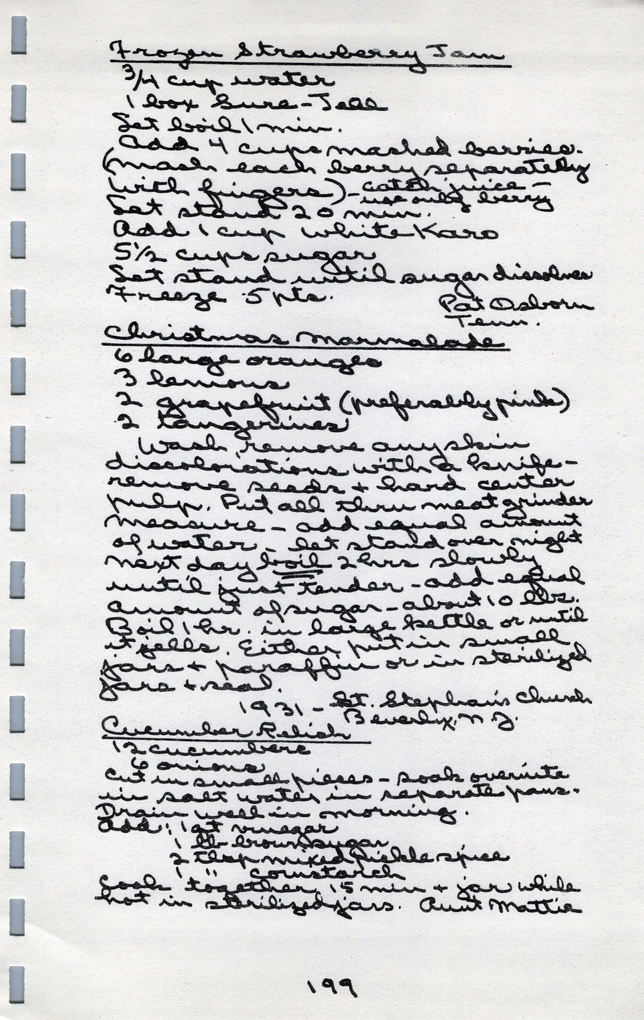 Frozen Strawberry Jam
3/4 cup water
1 box Sure-Jell
Let boil 1 min.
Add 4 cups mashed berries.
(mash each berry separately
with fingers) - catch juice -
use only berry
Let stand 20 min.
Add 1 cup white Karo
5 1/2 cups sugar
Let stand until sugar dissolves
Freeze 5 pts.
Pat Osborn
Tenn.
Christmas Marmalade
6 large oranges
3 lemons
2 grapefruit (preferably pink)
2 tangerines
Wash, remove any skin
discolorations with a knife -
remove seeds + hard center
pulp. Put all thru meat grinder
measure - add equal amount
of water - let stand over night
next day boil 2 hrs slowly
until just tender - add equal
amount of sugar - about 10 lbs.
Boil 1 hr. in large kettle or until
it jells. Either put in small
jars + paraffin or in sterilized
jars + seal.
1931 - St. Stephan's Church
Beverly, N.J.
Cucumber Relish
12 cucumbers
6 onions
Cut in small pieces - soak overnite
in salt water in separate pans.
Drain well in morning.
Add: 1 qt vinegar
1 lb brown sugar
2 tbsp mixed pickle spice
1 " cornstarch
Cook together 15 min + jar while
hot in sterilized jars. Aunt Mattie
199